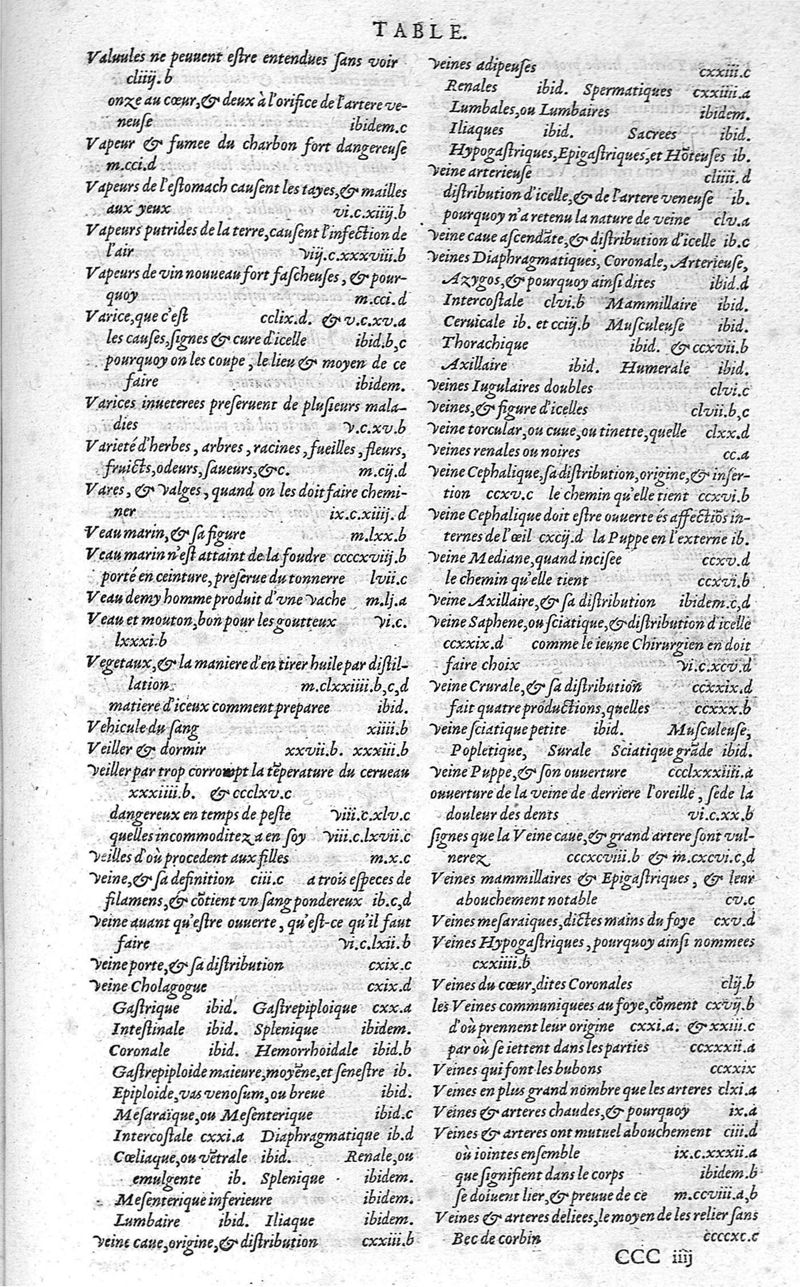 TABLE.
Valuules ne peuuent eſtre entendues ſans voir
cliiij.b
onze au cœur,& deux à l'orifice de l'artere ve-
neuſe ibidem.c
Vapeur & fumee du charbon fort dangereuſe
m.cci.d
Vapeurs de l'eſtomach cauſent les tayes,& mailles
aux yeux vi.c.xiiij.b
Vapeurs putrides de la terre,cauſent l'infection de
l'air viij.c.xxxviii.b
Vapeurs de vin nouueau fort faſcheuſes, & pour-
quoy m.cci.d
Varice,que c'eſt cclix.d. & v.c.xv.a
les cauſes,ſignes & cure d'icelle ibid,b,c
pourquoy on les coupe, le lieu & moyen de ce
faire ibidem.
Varices inueterees preſeruent de pluſieurs mala-
dies v.c.xv.b
Varieté d'herbes, arbres, racines, fueilles, fleurs,
fruicts,odeurs,ſaueurs,&c. m.cij.d
Vares, & valges, quand on les doit faire chemi-
ner ix.c.xiiij.d
Veau marin,& ſa figure m.lxx.b
Veau marin n'eſt attaint de la foudre ccccxviij.b
porté en ceinture, preſerue du tonnerre lvii.c
Veau demy homme produit d'vne vache m.lj.a
Veau et mouton,bon pour les goutteux vi.c.
lxxxi.b
Vegetaux,& la maniere d'en tirer huile par diſtil-
lation m.clxxiiii.b,c,d
matiere d'iceux comment preparee ibid.
Vehicule du ſang xiiii.b
Veiller & dormir xxvii.b. xxxiii.b
Veiller par trop corrompt la tēperature du cerueau
xxxiiii.b. & ccclxv.c
dangereux en temps de peſte viii.c.xlv.c
quelles incommoditez a en ſoy viii.c.lxvii.c
Veilles d'où procedent aux filles m.x.c
Veine,& ſa definition ciii.c a trois eſpeces de
filamens,& cōtient vn ſang pondereux ib.c,d
Veine auant qu'eſtre ouuerte, qu'eſt-ce qu'il faut
faire vi.c.lxii.b
Veine porte,& ſa diſtribution cxix.c
Veine Cholagogue cxix.d
Gaſtrique ibid. Gaſtrepiploique cxx.a
Inteſtinale ibid. Splenique ibidem.
Coronale ibid. Hemorrhoidale ibid.b
Gaſtrepiploide maieure,moyēne,et ſeneſtre ib.
Epiploide,vas venoſum,ou breue ibid.
Meſaraïque,ou Meſenterique ibid.c
Intercoſtale cxxi.a Diaphragmatique ib.d
Cœliaque,ou vētrale ibid. Renale,ou
emulgente ib. Splenique ibidem.
Meſenterique inferieure ibidem.
Lumbaire ibid. Iliaque ibidem.
Veine caue,origine,& diſtribution cxxiii.b
Veines adipeuſes cxxiii.c
Renales ibid. Spermatiques cxxiiii.a
Lumbales,ou Lumbaires ibidem.
Iliaques ibid. Sacrees ibid.
Hypogaſtriques,Epigaſtriques,et Hōteuſes ib.
Veine arterieuſe cliiii.d
diſtribution d'icelle,& de l'artere veneuſe ib.
pourquoy n'a retenu la nature de veine clv.a
Veine caue aſcendāte,& diſtribution d'icelle ib.c
Veines Diaphragmatiques, Coronale, Arterieuſe,
Azygos,& pourquoy ainſi dites ibid.d
Intercoſtale clvi.b Mammillaire ibid.
Ceruicale ib. et cciij.b Muſculeuſe ibid.
Thorachique ibid. & ccxvii.b
Axillaire ibid. Humerale ibid.
Veines Iugulaires doubles clvi.c
Veines,& figure d'icelles clvii.b,c
Veine torcular,ou cuue,ou tinette,quelle clxx.d
Veines renales ou noires cc.a
Veine Cephalique,ſa diſtribution,origine,& inſer-
tion ccxv.c le chemin qu'elle tient ccxvi.b
Veine Cephalique doit eſtre ouuerte és affectiōs in-
ternes de l'œil cxcij.d la Puppe en l'externe ib.
Veine Mediane,quand inciſee ccxv.d
le chemin qu'elle tient ccxvi.b
Veine Axillaire,& ſa diſtribution ibidem.c,d
Veine Saphene,ou ſciatique,& diſtribution d'icelle
ccxxix.d comme le ieune Chirurgien en doit
faire choix vi.c.xcv.d
Veine Crurale,& ſa diſtribution ccxxix.d
fait quatre productions,quelles ccxxx.b
Veine ſciatique petite ibid. Muſculeuſe,
Popletique, Surale Sciatique grāde ibid.
Veine Puppe,& ſon ouuerture ccclxxxiiii.a
ouuerture de la veine de derriere l'oreille, ſede la
douleur des dents vi.c.xx.b
ſignes que la Veine caue,& grand artere ſont vul-
nerez cccxcviii.b & m.cxcvi.c,d
Veines mammillaires & Epigaſtriques, & leur
abouchement notable cv.c
Veines meſaraiques,dictes mains du foye cxv.d
Veines Hypogaſtriques, pourquoy ainſi nommees
cxxiiii.b
Veines du cœur,dites Coronales clij.b
les Veines communiquees au foye,cōment cxvij.b
d'où prennent leur origine cxxi.a. & xxiii.c
par où ſe iettent dans les parties ccxxxii.a
Veines qui font les bubons ccxxix
Veines en plus grand nombre que les arteres clxi.a
Veines & arteres chaudes,& pourquoy ix.a
Veines & arteres ont mutuel abouchement ciii.d
où iointes enſemble ix.c.xxxii.a
que ſignifient dans le corps ibidem.b
ſe doiuent lier,& preuue de ce m.ccviii.a,b
Veines & arteres deliees,le moyen de les relier ſans
Bec de corbin ccccxc.c
CCC iiij